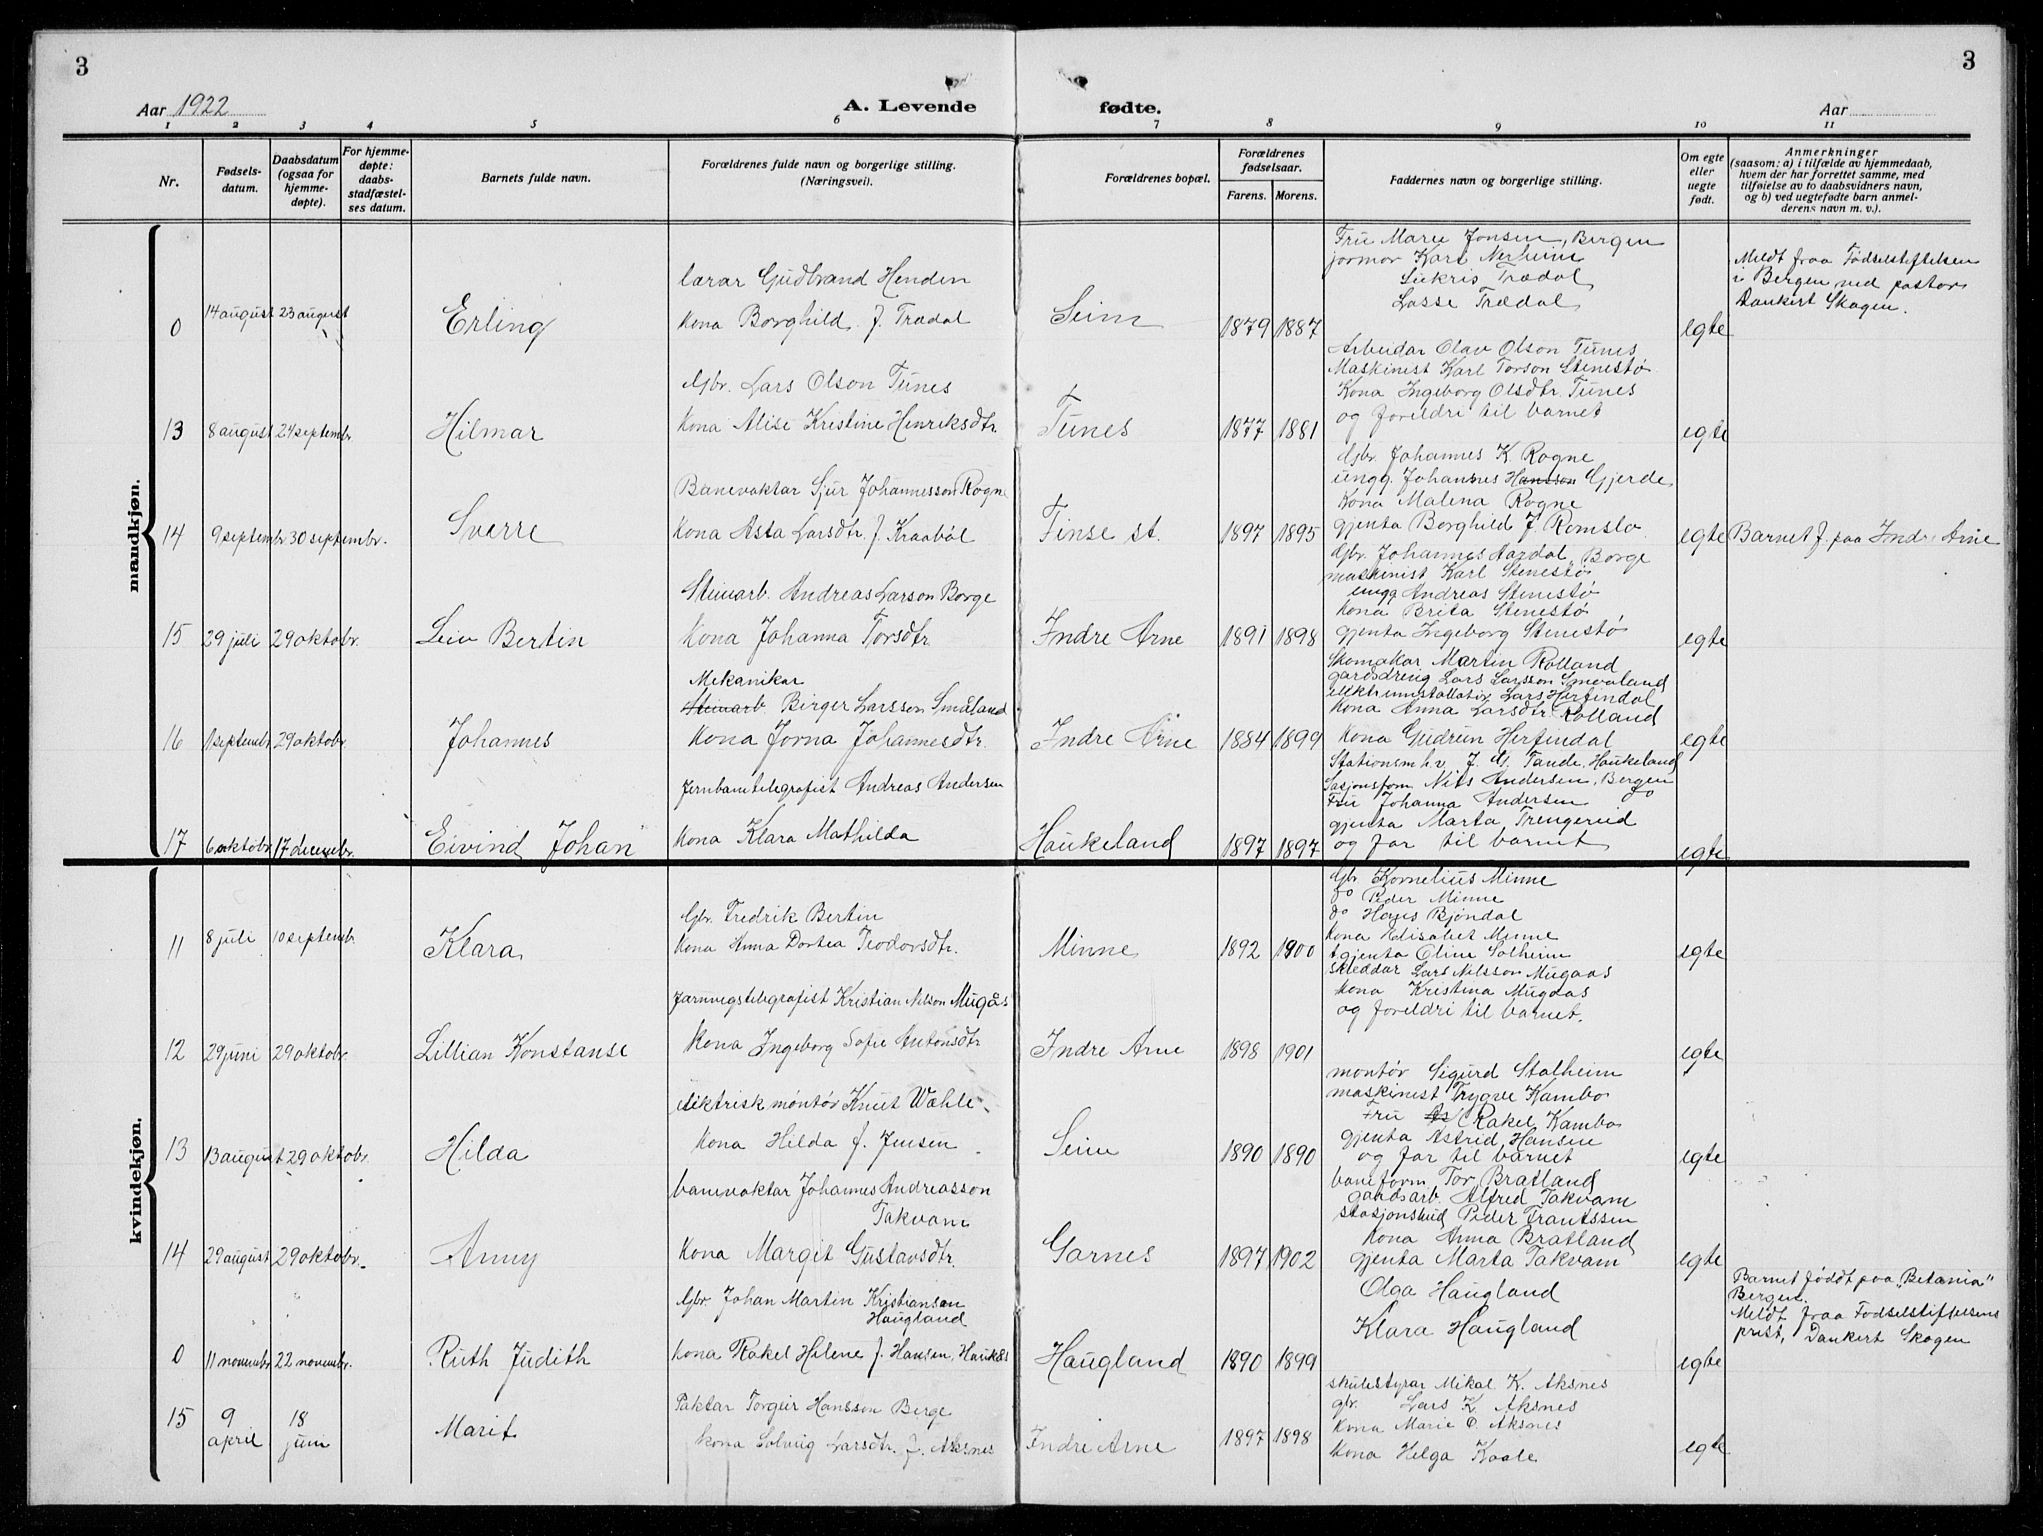 3
3
Aar 1922
A. Levende
fødte.
Aar
1 2 3 4 5 6 7 8 9 10 11
Nr.
Fødsels-
datum.
Daabsdatum
(ogsaa for
hjemme-
døpte).
For hjemme-
døpte:
daabs-
stadfæstel-
ses datum.
Barnets fulde navn.
Forældrenes fulde navn og borgerlige stilling.
(Næringsvei).
Forældrenes bopæl.
Forældrenes
fødselsaar.
Farens. Morens.
Faddernes navn og borgerlige stilling.
Om egte
eller
uegte
født.
Anmerkninger
(saasom: a) i tilfælde av hjemmedaab,
hvem der har forrettet samme, med
tilføielse av to daabsvidners navn,
og b) ved uegtefødte barn anmel-
derens navn m. v.).
mandkjøn.
0 14 august 23 august Erling
lærar Gudbrand Henden
Kona Borghild f. Trædal
Seim 1879 1887
Fru Marie Jonsen, Bergen
jormor Kari Nerheim
Sukris Trædal
Lasse Trædal
egte
Meldt fraa Fødselstiftelsen
i Bergen ved pastor
Dankert Skagen.
13 8 august 24 septembr Hilmar
Gbr. Lars Olson Tunes
Kona Alise Kristine Henriksdtr.
Tunes 1877 1881
Arbeidar Olav Olson Tunes
Maskinist Karl Torson Stenestø
Kona Ingeborg Olsdtr. Tunes
og foreldri til barnet
egte
14 9 septembr 30 septembr. Sverre
Banevaktar Sjur Johannesson Rogne
Kona Asta Larsdtr. f. Kraabøl
Finse st. 1897 1895
Gbr. Johannes K. Rogne
ungg. Johannes Hansson Gjerde
Kona Malena Rogne
gjenta Borghild J. Romslo
egte
Barnet f. paa Indre Arne
15 29 juli 29 oktobr. Leiv Bertin
Steinarb. Andreas Larson Borge
Kona Johanna Torsdtr.
Indre Arne 1891 1898
Gbr. Johannes Aardal, Borge
maskinist Karl Stenestø
ungg Andreas Stenestø
Kona Brita Stenestø
gjenta Ingeborg Stenestø
egte
16 1 septembr 29 oktobr. Johannes
Mekanikar
Steinarb. Birger Larsson Småland
Kona Jorna Johannesdtr.
Indre Arne 1884 1899
Skomakar Martin Rolland
gardsdreng Lars Larsson Smøraland
elektr.installatør Lars Herfindal
Kona Anna Larsdtr. Rolland
Kona Gudrun Herfindal
egte
17 6 oktobr. 17 decembr. Eivind Johan
Jernbanetelegrafist Andreas Andersen
Kona Klara Mathilda
Haukeland 1897 1897
Stationsm. h.v. J. G. Tande, Haukeland
Sasjonsform. Nils Andersen, Bergen
Fru Johanna Andersen do
gjenta Marta Trengerud
og far til barnet
egte
kvindekjøn.
11 8 juli 10 septembr Klara
Gbr. Fredrik Bertin
Kona Anna Dortea Teodorsdtr.
Minne 1892 1900
Gbr. Kornelius Minne
do Peder Minne
do Hans Bjöndal
Kona Elisabet Minne
t gjenta Oline Solheim
egte
12 29 juni 29 oktobr. Lillian Konstanse
Jarnvegstelegrafist Kristian Nilson Mugås
Kona Ingeborg Sofie Antonsdtr
Indre Arne 1898 1901
skreddar Lars Nilsson Mugaas
Kona Kristina Mugaas
og foreldri til barnet.
egte
13 13 august 29 oktobr. Hilda
elektrisk montör Knut Wahle.
Kona Hilda f. Jensen
Seim 1890 1890
montör Sigurd Stalheim
maskinest Trygve Kambo
Fru Rakel Kambo
gjenta Astrid Hansen
og far til barnet
egte
14 29 august 29 oktobr. Anny
banevaktar Johannes Andreasson
Takvam
Kona Margit Gustavsdtr.
Garnes 1897 1902
baneform. Tor Bratland
gaardsarb. Alfred Takvam
stasjonsbud Peder Frantssen
Kona Anna Bratland
gjenta Marta Takvam
egte
0 11 novembr. 22 novembr. Ruth Judith
Gbr. Johan Martin Kristiansen
Haugland
Kona Rakel Helene f. Hansen, Haukås
Haugland 1890 1899
Olga Haugland
Klara Haugland
egte
Barnet føddt paa „Betania"
Bergen.
Meldt fraa Fødselstiftelsens
prest, Dankert Skagen
15 9 april 18 juni Marit
Paktar Torgeir Hansson Berge
Kona Solveig Larsdtr. f. Aksnes
Indre Arne 1897 1898
skulestyrar Mikal K. Aksnes
gbr. Lars K. Aksnes
Kona Marie O. Aksnes
Kona Helga Kaale
egte